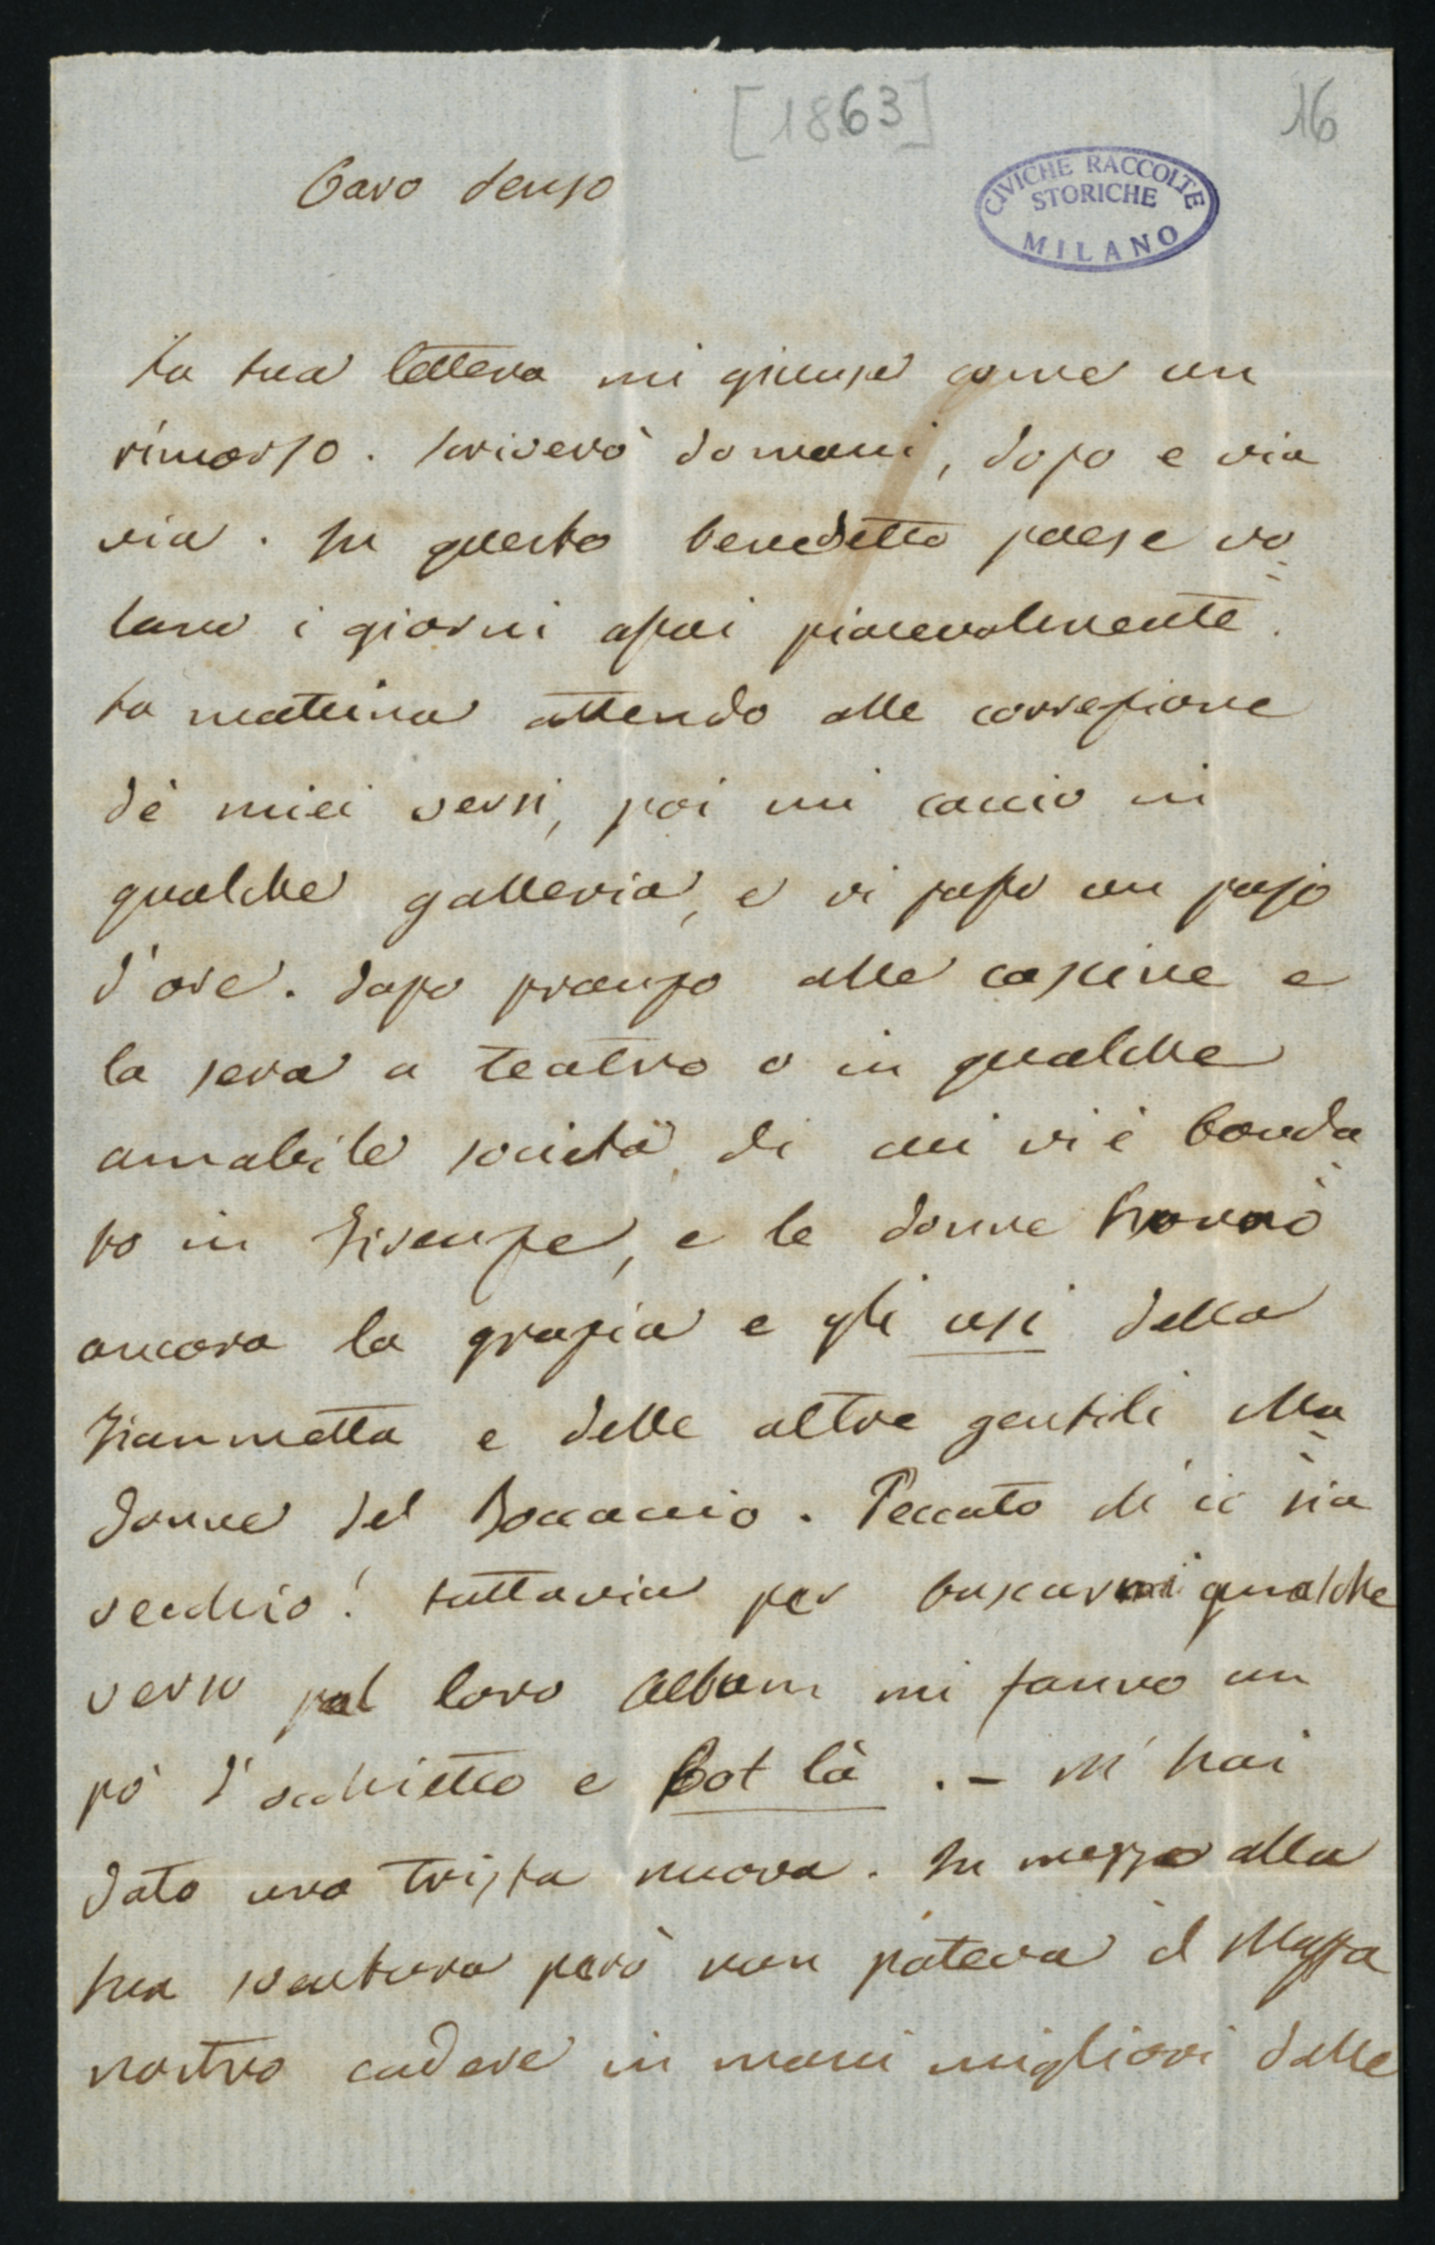 [1863]
16
CIVICHE RACCOLTE
STORICHE
MILANO
Caro Denso
La tua lettera mi giunse come un
rimorso. Scriverò domani, dopo e via
via. In questo benedetto paese vo=
lano i giorni assai piacevolmente.
La mattina attendo alle correzione
de' miei versi, poi mi caccio in
qualche galleria, e vi passo un pajo
d'ore. Dopo pranzo alle cascine e
la sera a teatro o in qualche
amabile società, di cui vi è bonda
to in Firenze, e le donne hanno
ancora la grazia e gli usi della
Fiammetta e delle altre gentili Ma=
donne del Boccaccio. Peccato ch'io sia
vecchio! tuttavia per buscarmi qualche
verso pel loro album mi fanno un
pò d'occhietto e bot là. — M'hai
dato una trista nuova. In mezzo alla
sua sventura però non poteva il Massa
nostro cadere in mani migliori delle